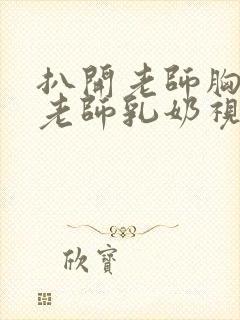 扒開老師胸
老師乳奶視
欣寶